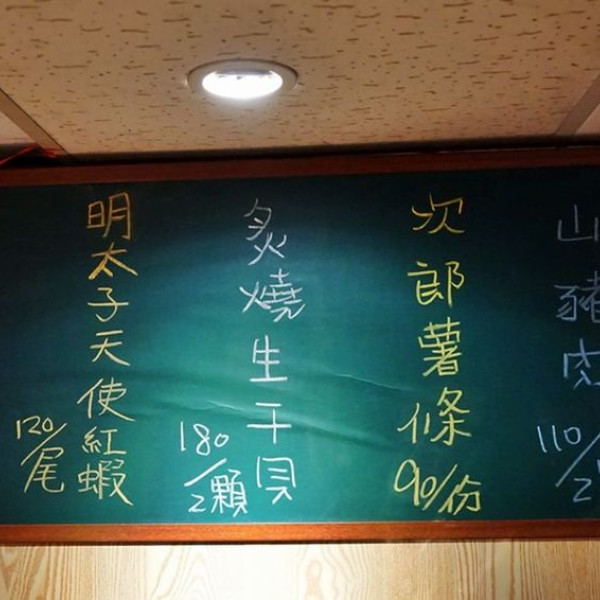 山豬肉
110/2
次郎薯條
90/份
炙燒生干貝
180/2顆
明太子天使紅蝦
120/尾